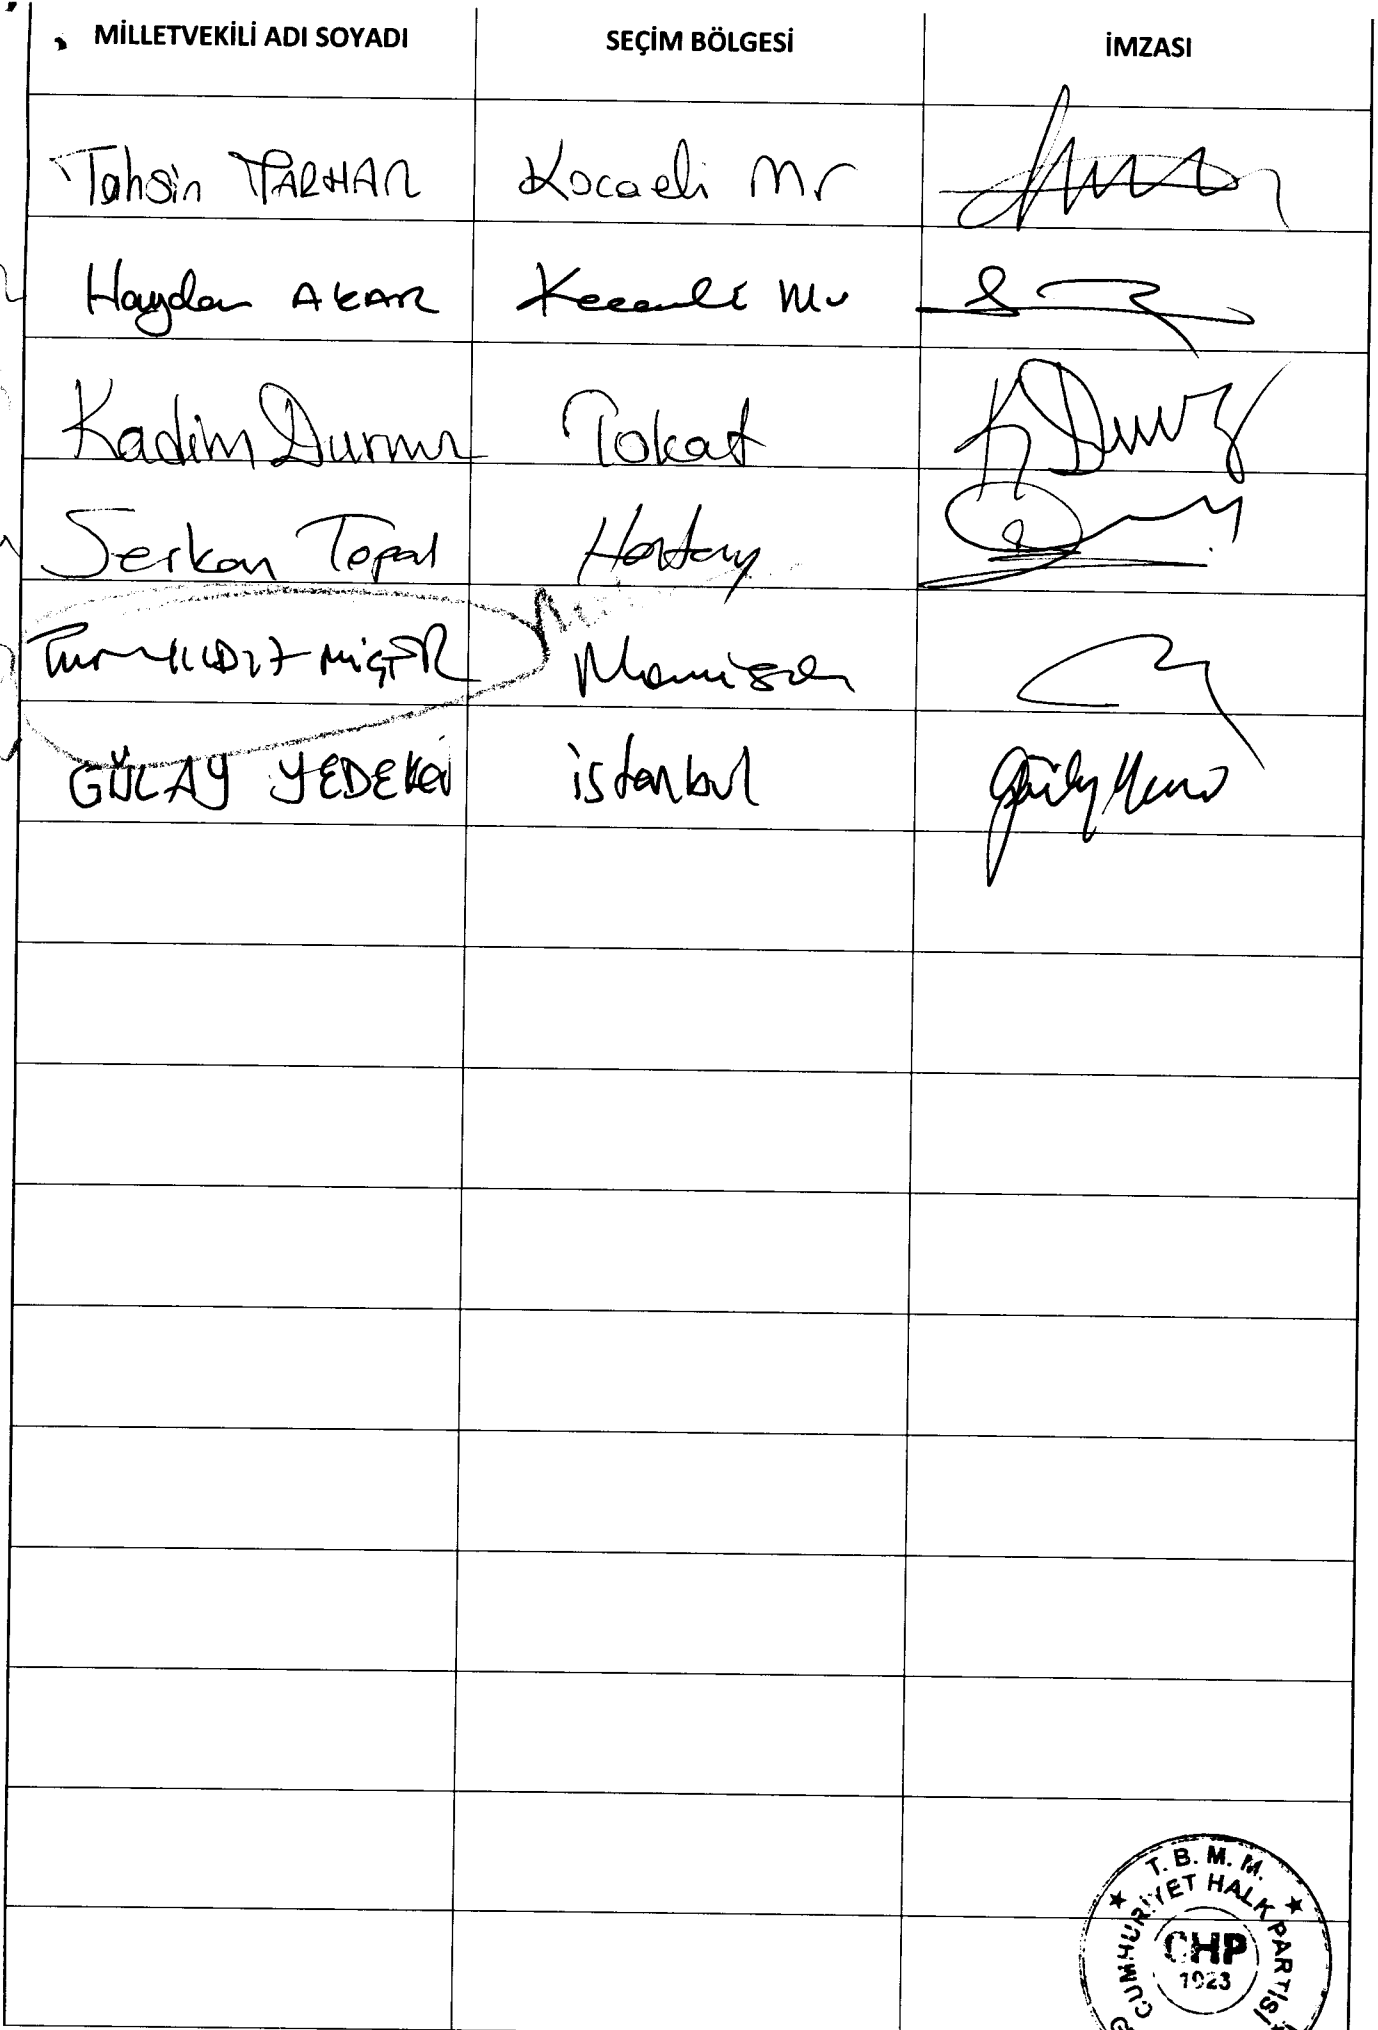 MİLLETVEKİLİ ADI SOYADI SEÇİM BÖLGESİ İMZASI
Tahsin TARHAN Kocaeli Mv
Haydar AKAR Kocaeli Mv
Kadim Durmaz Tokat
Serkan Topal Hatay
Tur YILDIZ BİÇER Manisa
GÜLAY YEDEKCİ istanbul
T. B. M. M.
CUMHURİYET HALK PARTİSİ
CHP
1923